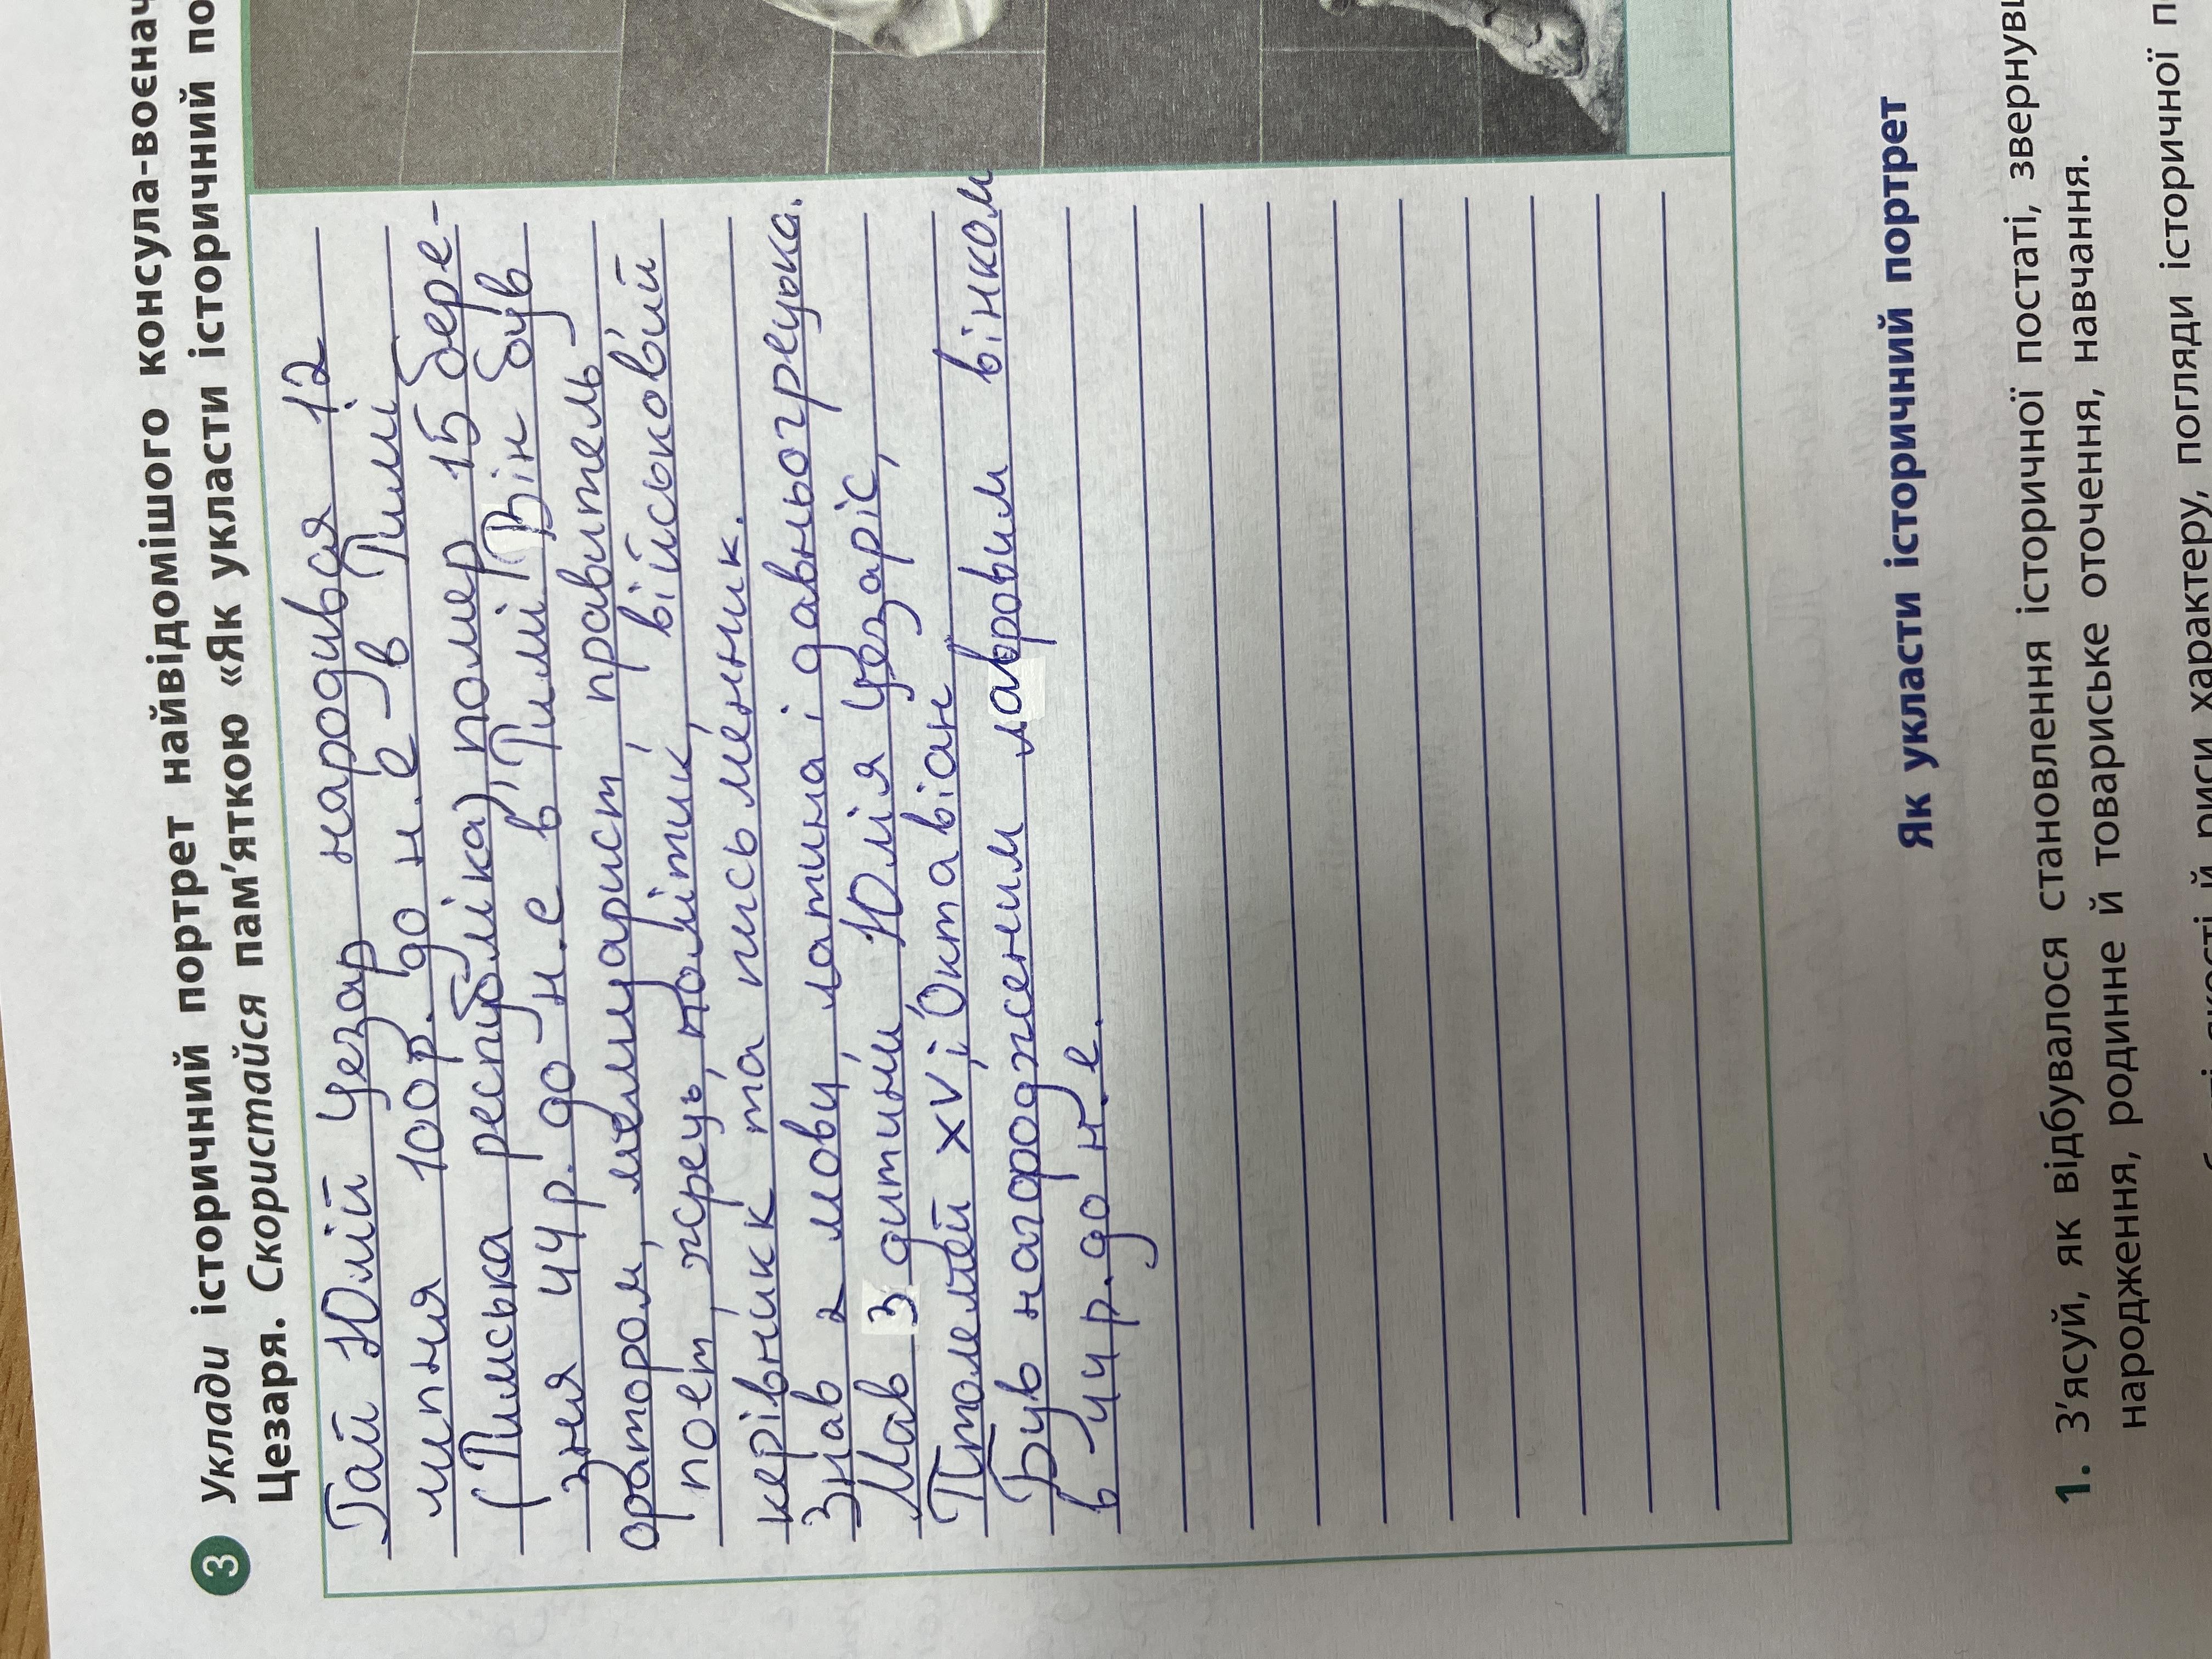 3 Уклади історичний портрет найвідомішого консула-воєнач
Цезаря. Скористайся пам'яткою «Як укласти історичний по
Гай Юлій Цезар народився 12
липня 100р. до н.е - в Римі
(Римська республіка), помер 15 бере-
зня 44р. до н.е в Римі. Він був
оратором, мемуарист, правитель
поет, жрець, політик, військовий
керівник та письменник.
Знав 2 мови, латина і давньогрецька.
Мав 3 дитини Юлія Цезаріс,
Птолемей XV, і Октавіан
Був нагородженим лавровим вінком
в 44р. до н.е.
Як укласти історичний портрет
1. З'ясуй, як відбувалося становлення історичної постаті, звернувш
народження, родинне й товариське оточення, навчання.
й риси характеру, погляди історичної п